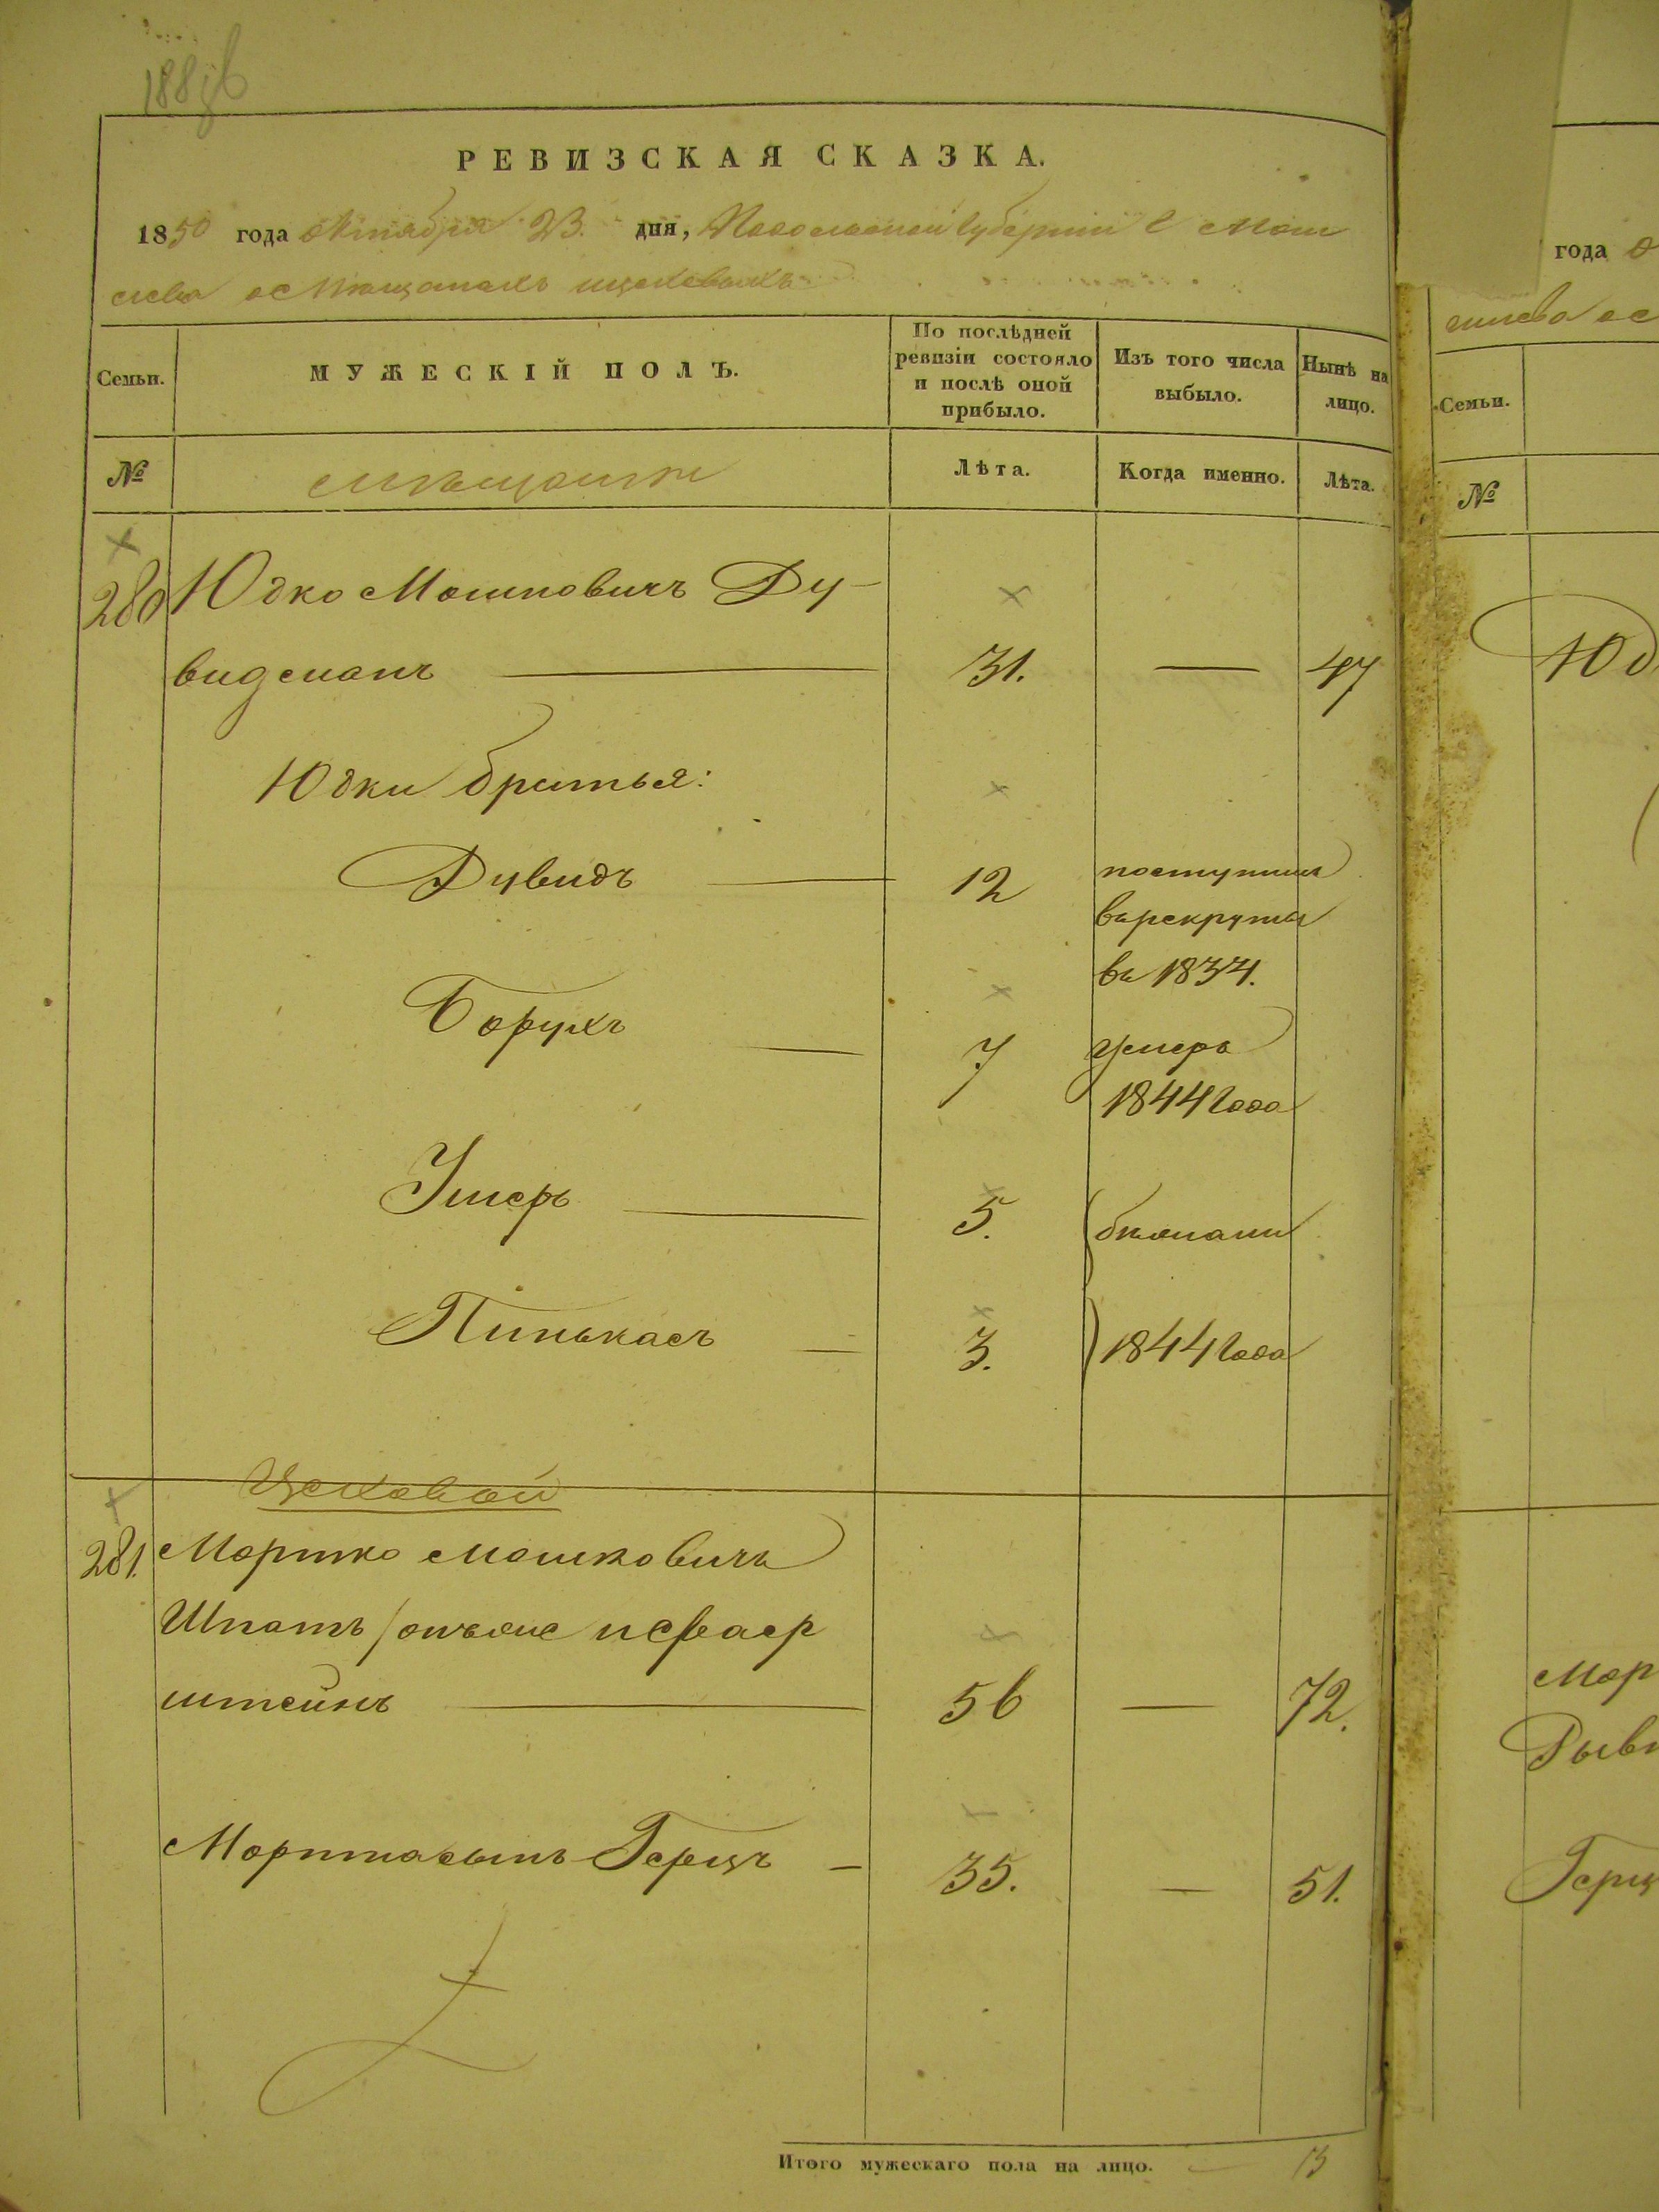 РЕВИЗСКАЯ СКАЗКА.
1850 года Октября 23. дня, Подольской Губернiи г Моги
лева о мещанахъ цеховыхъ
Семьи.
МУЖЕСКIЙ ПОЛЪ.
По послѣдней ревизiи состояло и послѣ оной прибыло.
Изъ того числа выбыло.
Нынѣ на лицо.
№
мѣщане
Лѣта.
Когда именно.
Лѣта.
280 Юдко Мошковичъ Ду-
видманъ 31. — 47
Юдки братья:
Дувидъ 12 поступилъ
въ рекруты
въ 1834.
Борухъ 7 умеръ
1844 года
Ушеръ 5. бѣжали
Пинькасъ 3. 1844 года
Цеховой
281. Мортко Мошковичъ
Шпатъ онъже
штейнъ 56 — 72.
Мортка сынъ Герцъ 35. — 51.
Итого мужескаго пола на лицо. — 3
года
Семьи.
№
Юд
Мор
Рыв
Герц